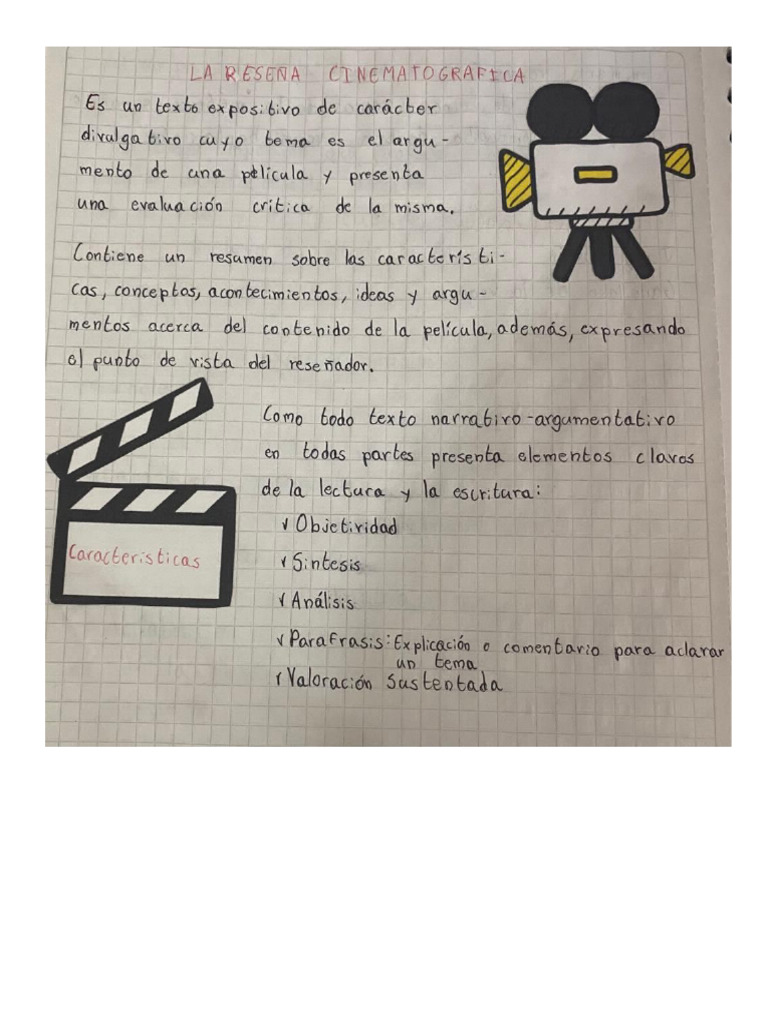 LA RESEÑA CINEMATOGRAFICA
Es un texto expositivo de carácter
divulgativo cuyo tema es el argu-
mento de una pelicula y presenta
una evaluación critica de la misma.
Contiene un resumen sobre las característi-
cas, conceptos, acontecimientos, ideas y argu-
mentos acerca del contenido de la película, además, expresando
el punto de vista del reseñador.
Como todo texto narrativo-argumentativo
en todas partes presenta elementos claves
de la lectura y la escritura:
Caracteristicas
√ Objetividad
√ Sintesis
√ Análisis
√ Parafrasis: Explicación o comentario para aclarar
un tema
√ Valoración Sustentada